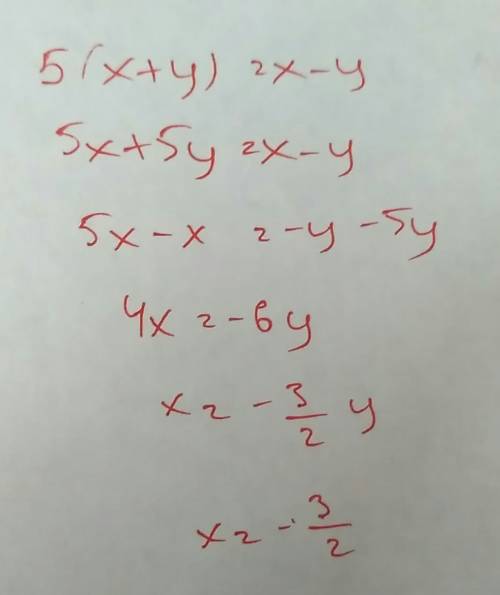 5(x+y) = x-y
5x+5y = x-y
5x-x = -y-5y
4x = -6y
x = -3/2 y
x = -3/2